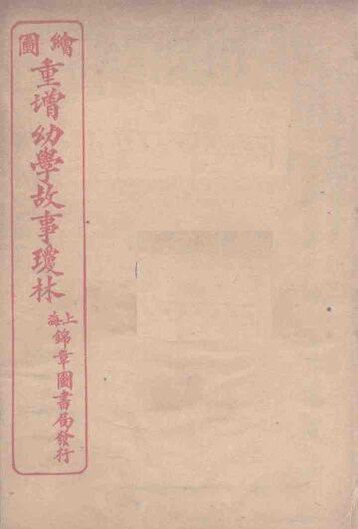 繪圖
重增幼學故事瓊林
上海
錦章圖書局發行